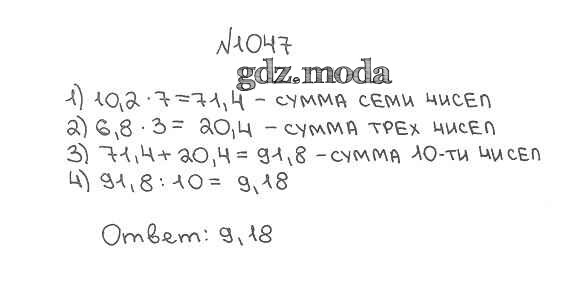 №1047
gdz.moda
1) 10,2 · 7 = 71,4 – сумма семи чисел
2) 6,8 · 3 = 20,4 – сумма трех чисел
3) 71,4 + 20,4 = 91,8 – сумма 10-ти чисел
4) 91,8 : 10 = 9,18
Ответ: 9,18